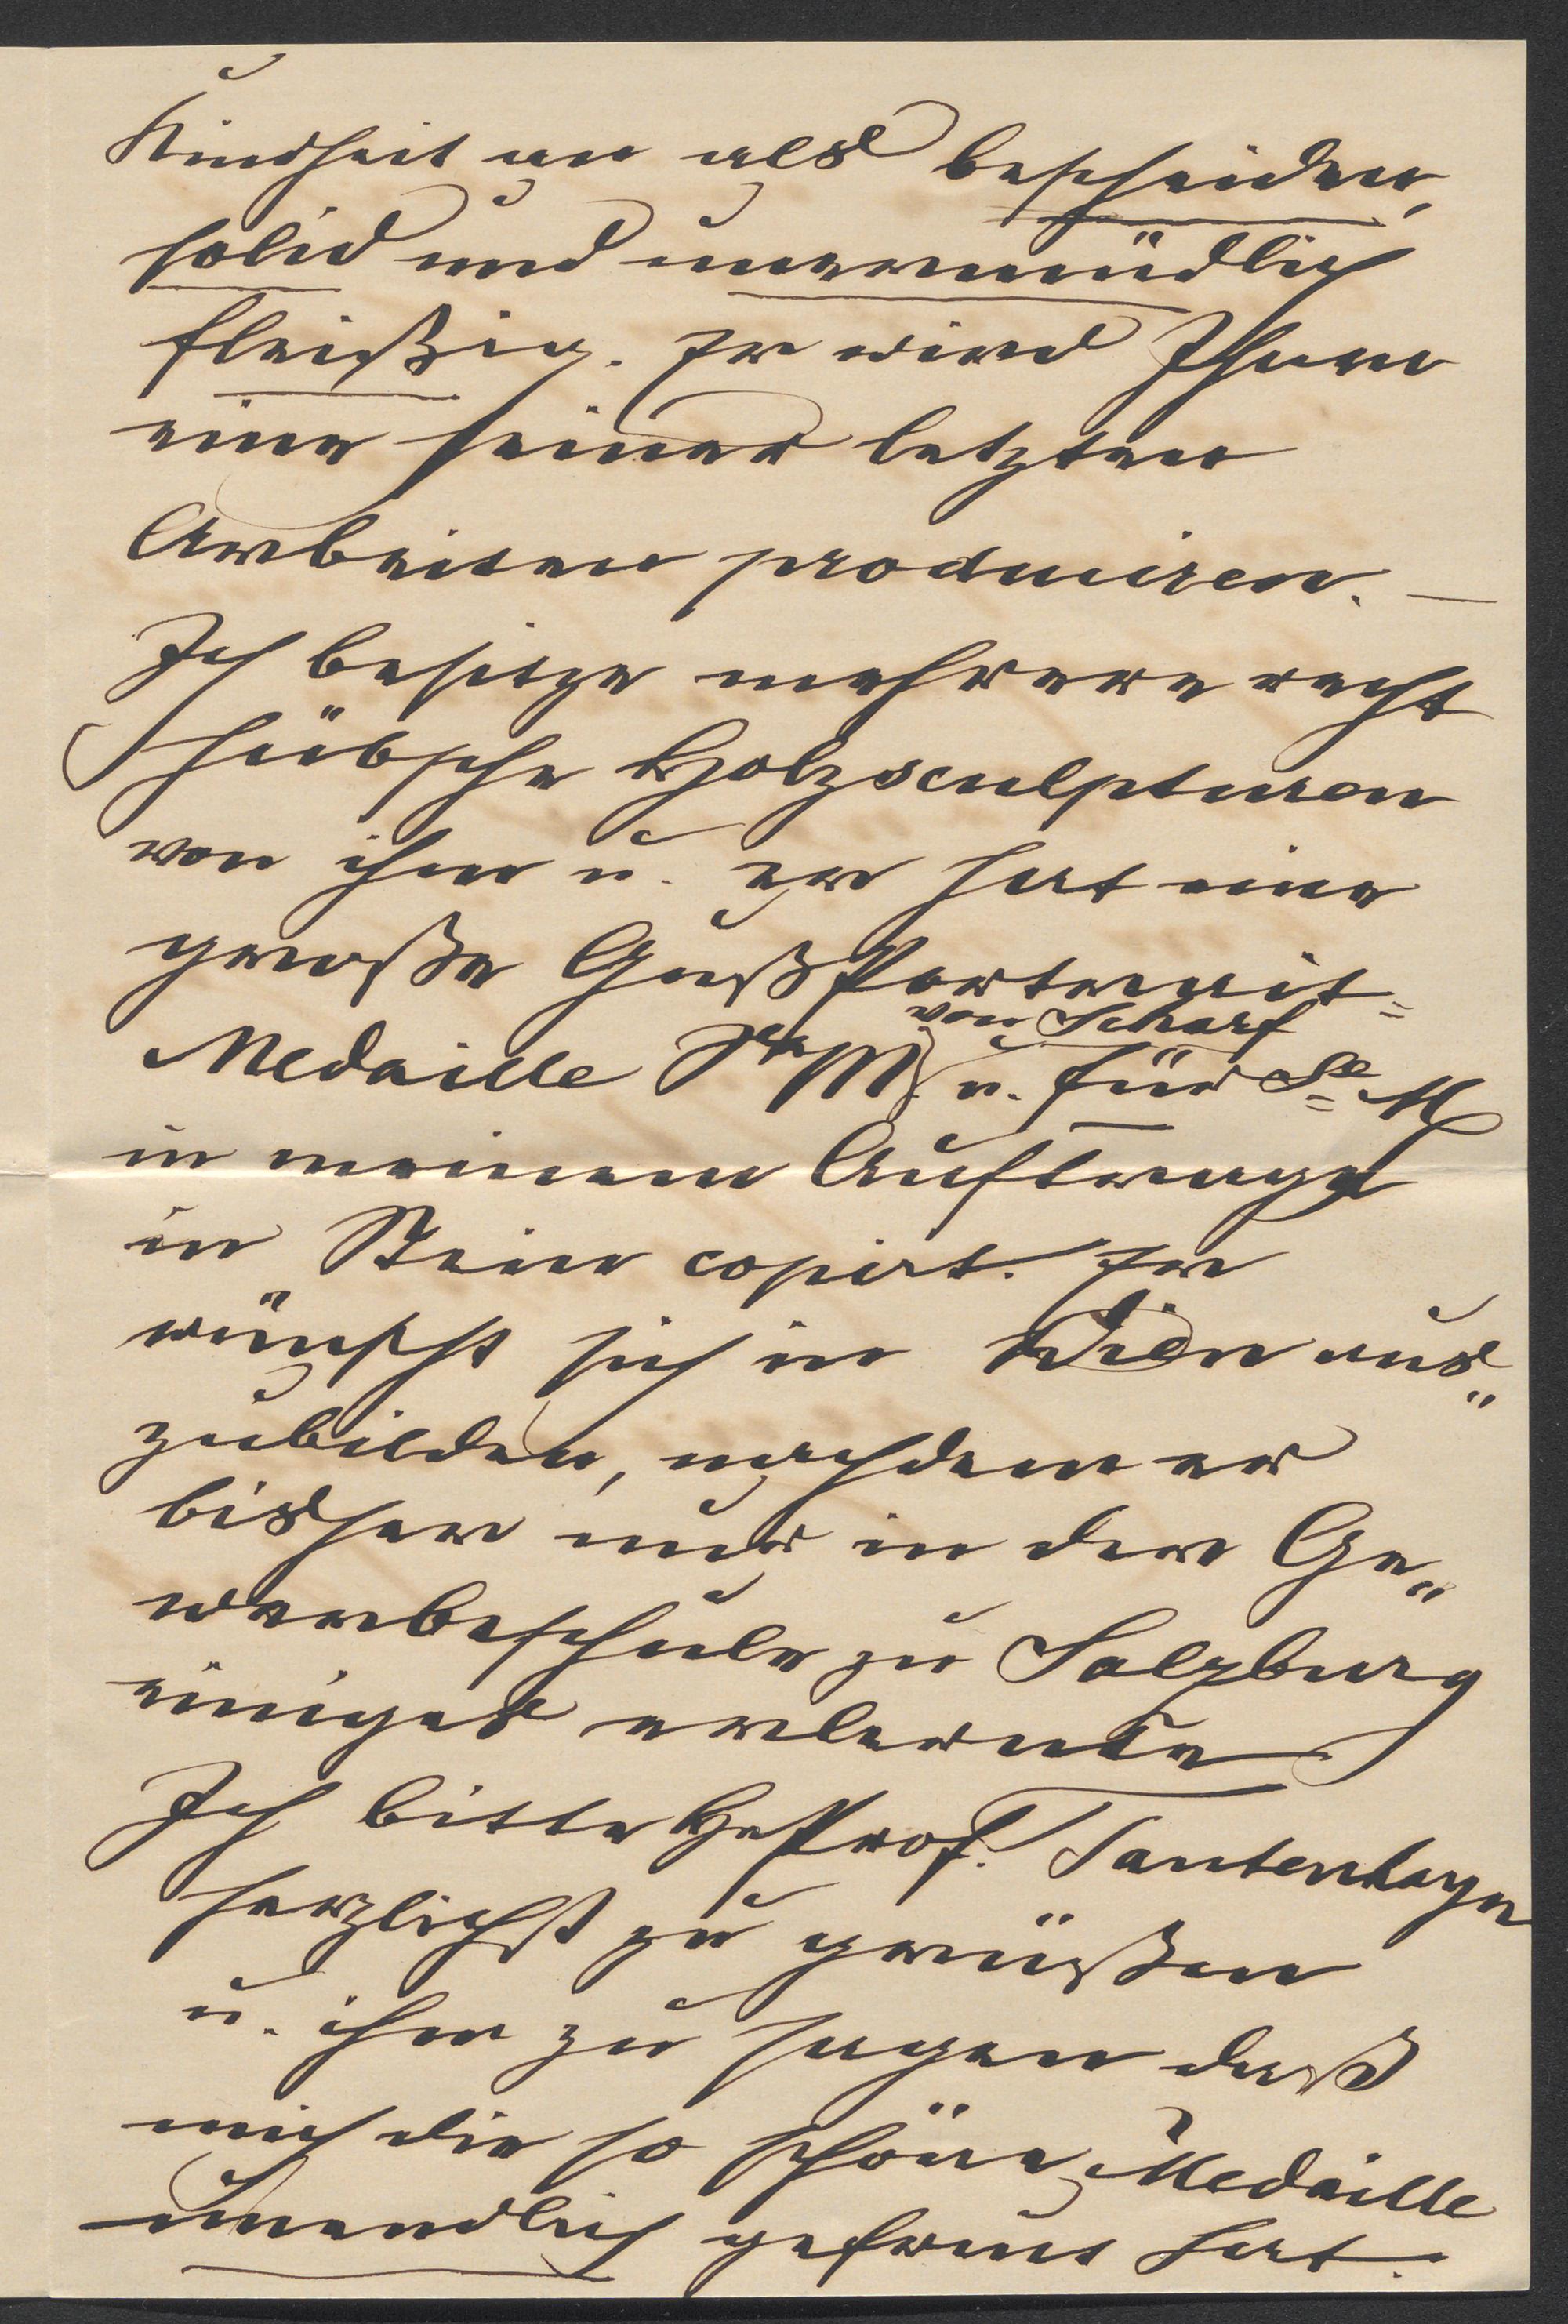 Kindheit an als bescheiden,
solid und unermüdlich
fleißig. Er wird Ihnen
eine seiner letzten
Arbeiten produciren. —
Ich besitze mehrere recht
hübsche Holzsculpturen
von ihm u. er hat eine
große Guß Portrait=
von Scharf
Medaille Sr M. u. für Se M
in meinem Auftrage
in Stein copirt. Er
wünscht sich in Wien aus„
zubilden, nachdem er
bisher nur in der Ge„
werbeschule zu Salzburg
einiges erlernte
Ich bitte H Prof. Tautenhayn
herzlichst zu grüßen
u. ihm zu sagen daß
mich die so schöne Medaille
unendlich gefreut hat.